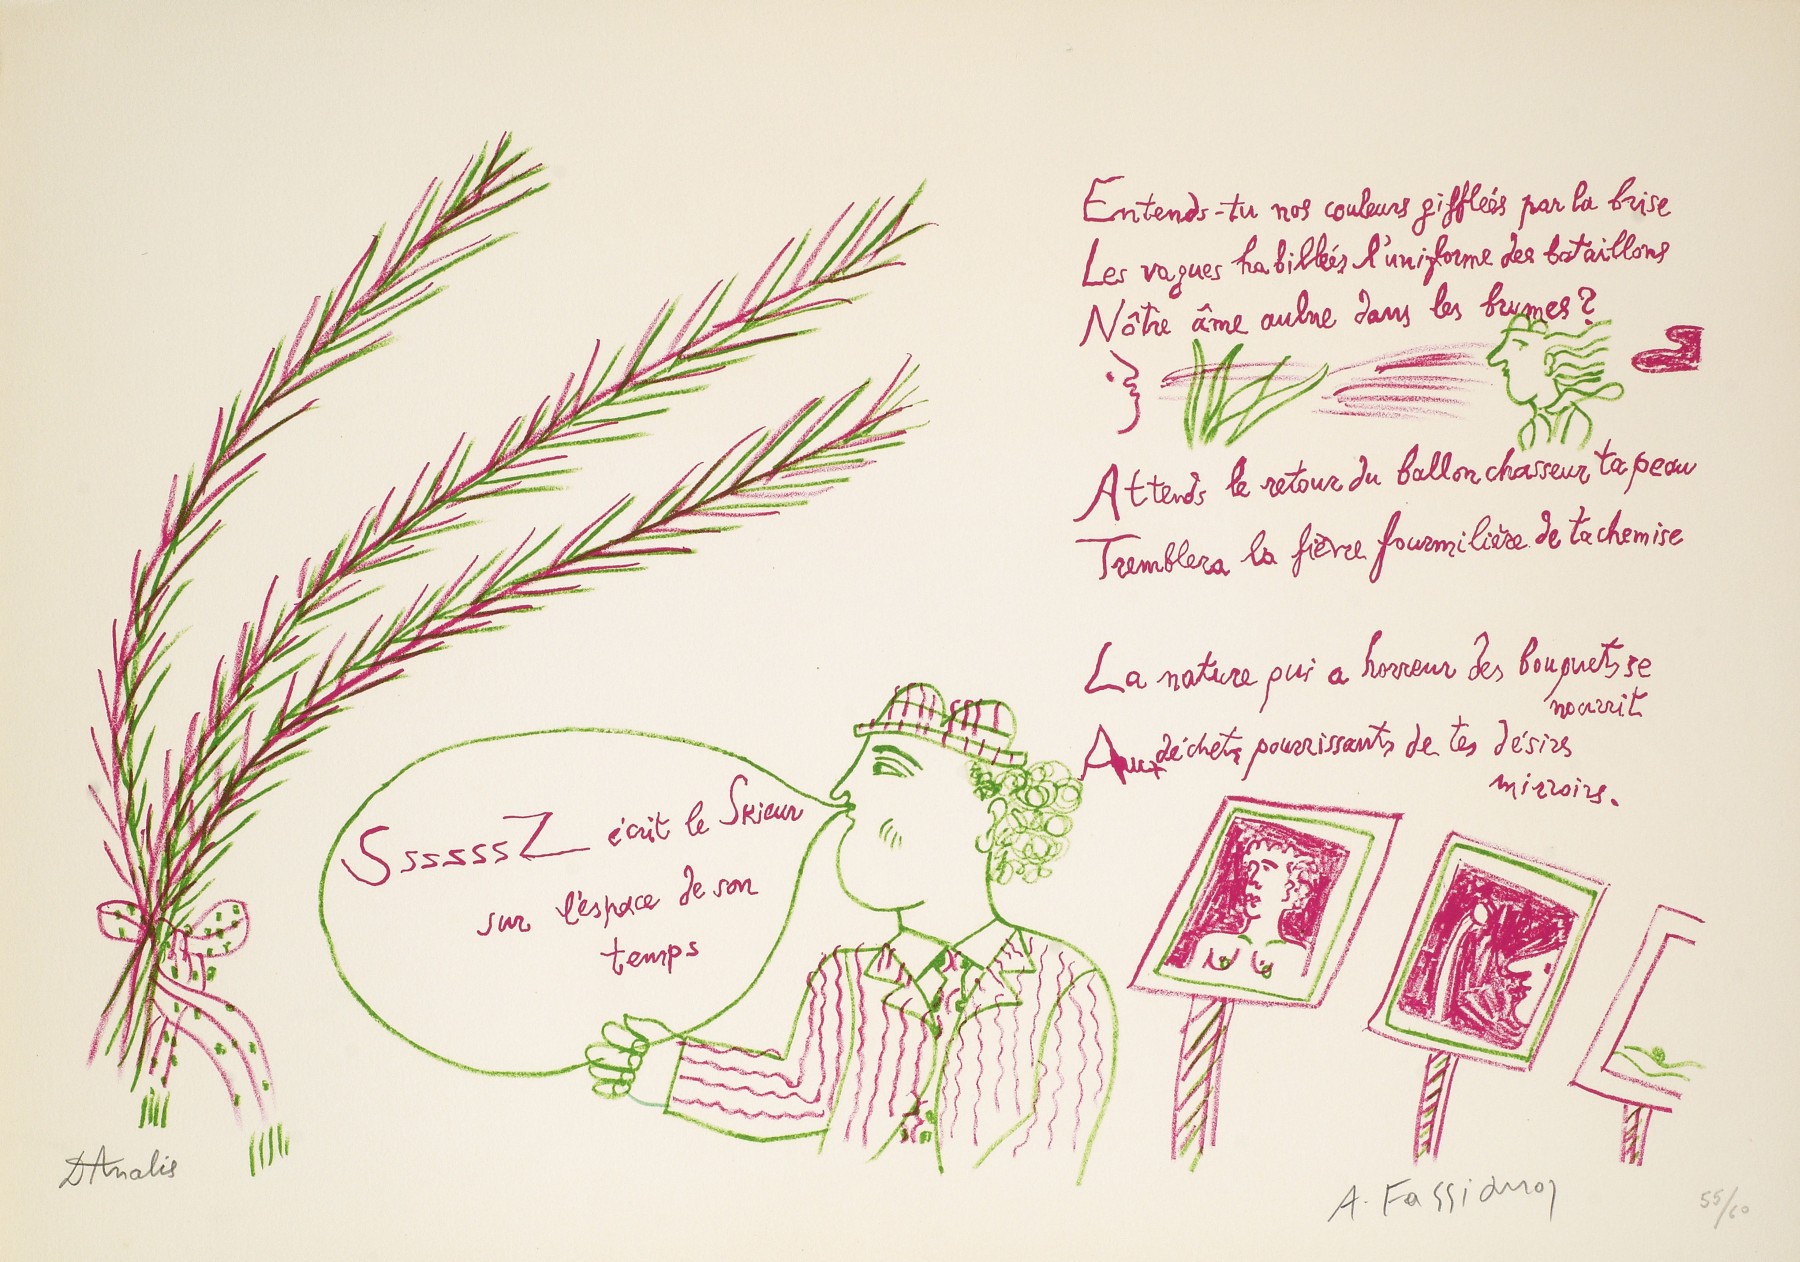 Entends-tu nos couleurs gifflées par la brise
Les vagues habillées l'uniforme des bataillons
Nôtre âme aulne dans les brumes?
Attends le retour du ballon chasseur ta peau
Tremblera la fièvre fourmilière de ta chemise
La nature qui a horreur des bouquets se
nourrit
Aux déchets pourrissants de tes désirs
mirroirs.
SssssssZ écrit le Skieur
sur l'espace de son
temps
D Analis
A. Fassianos
55/60